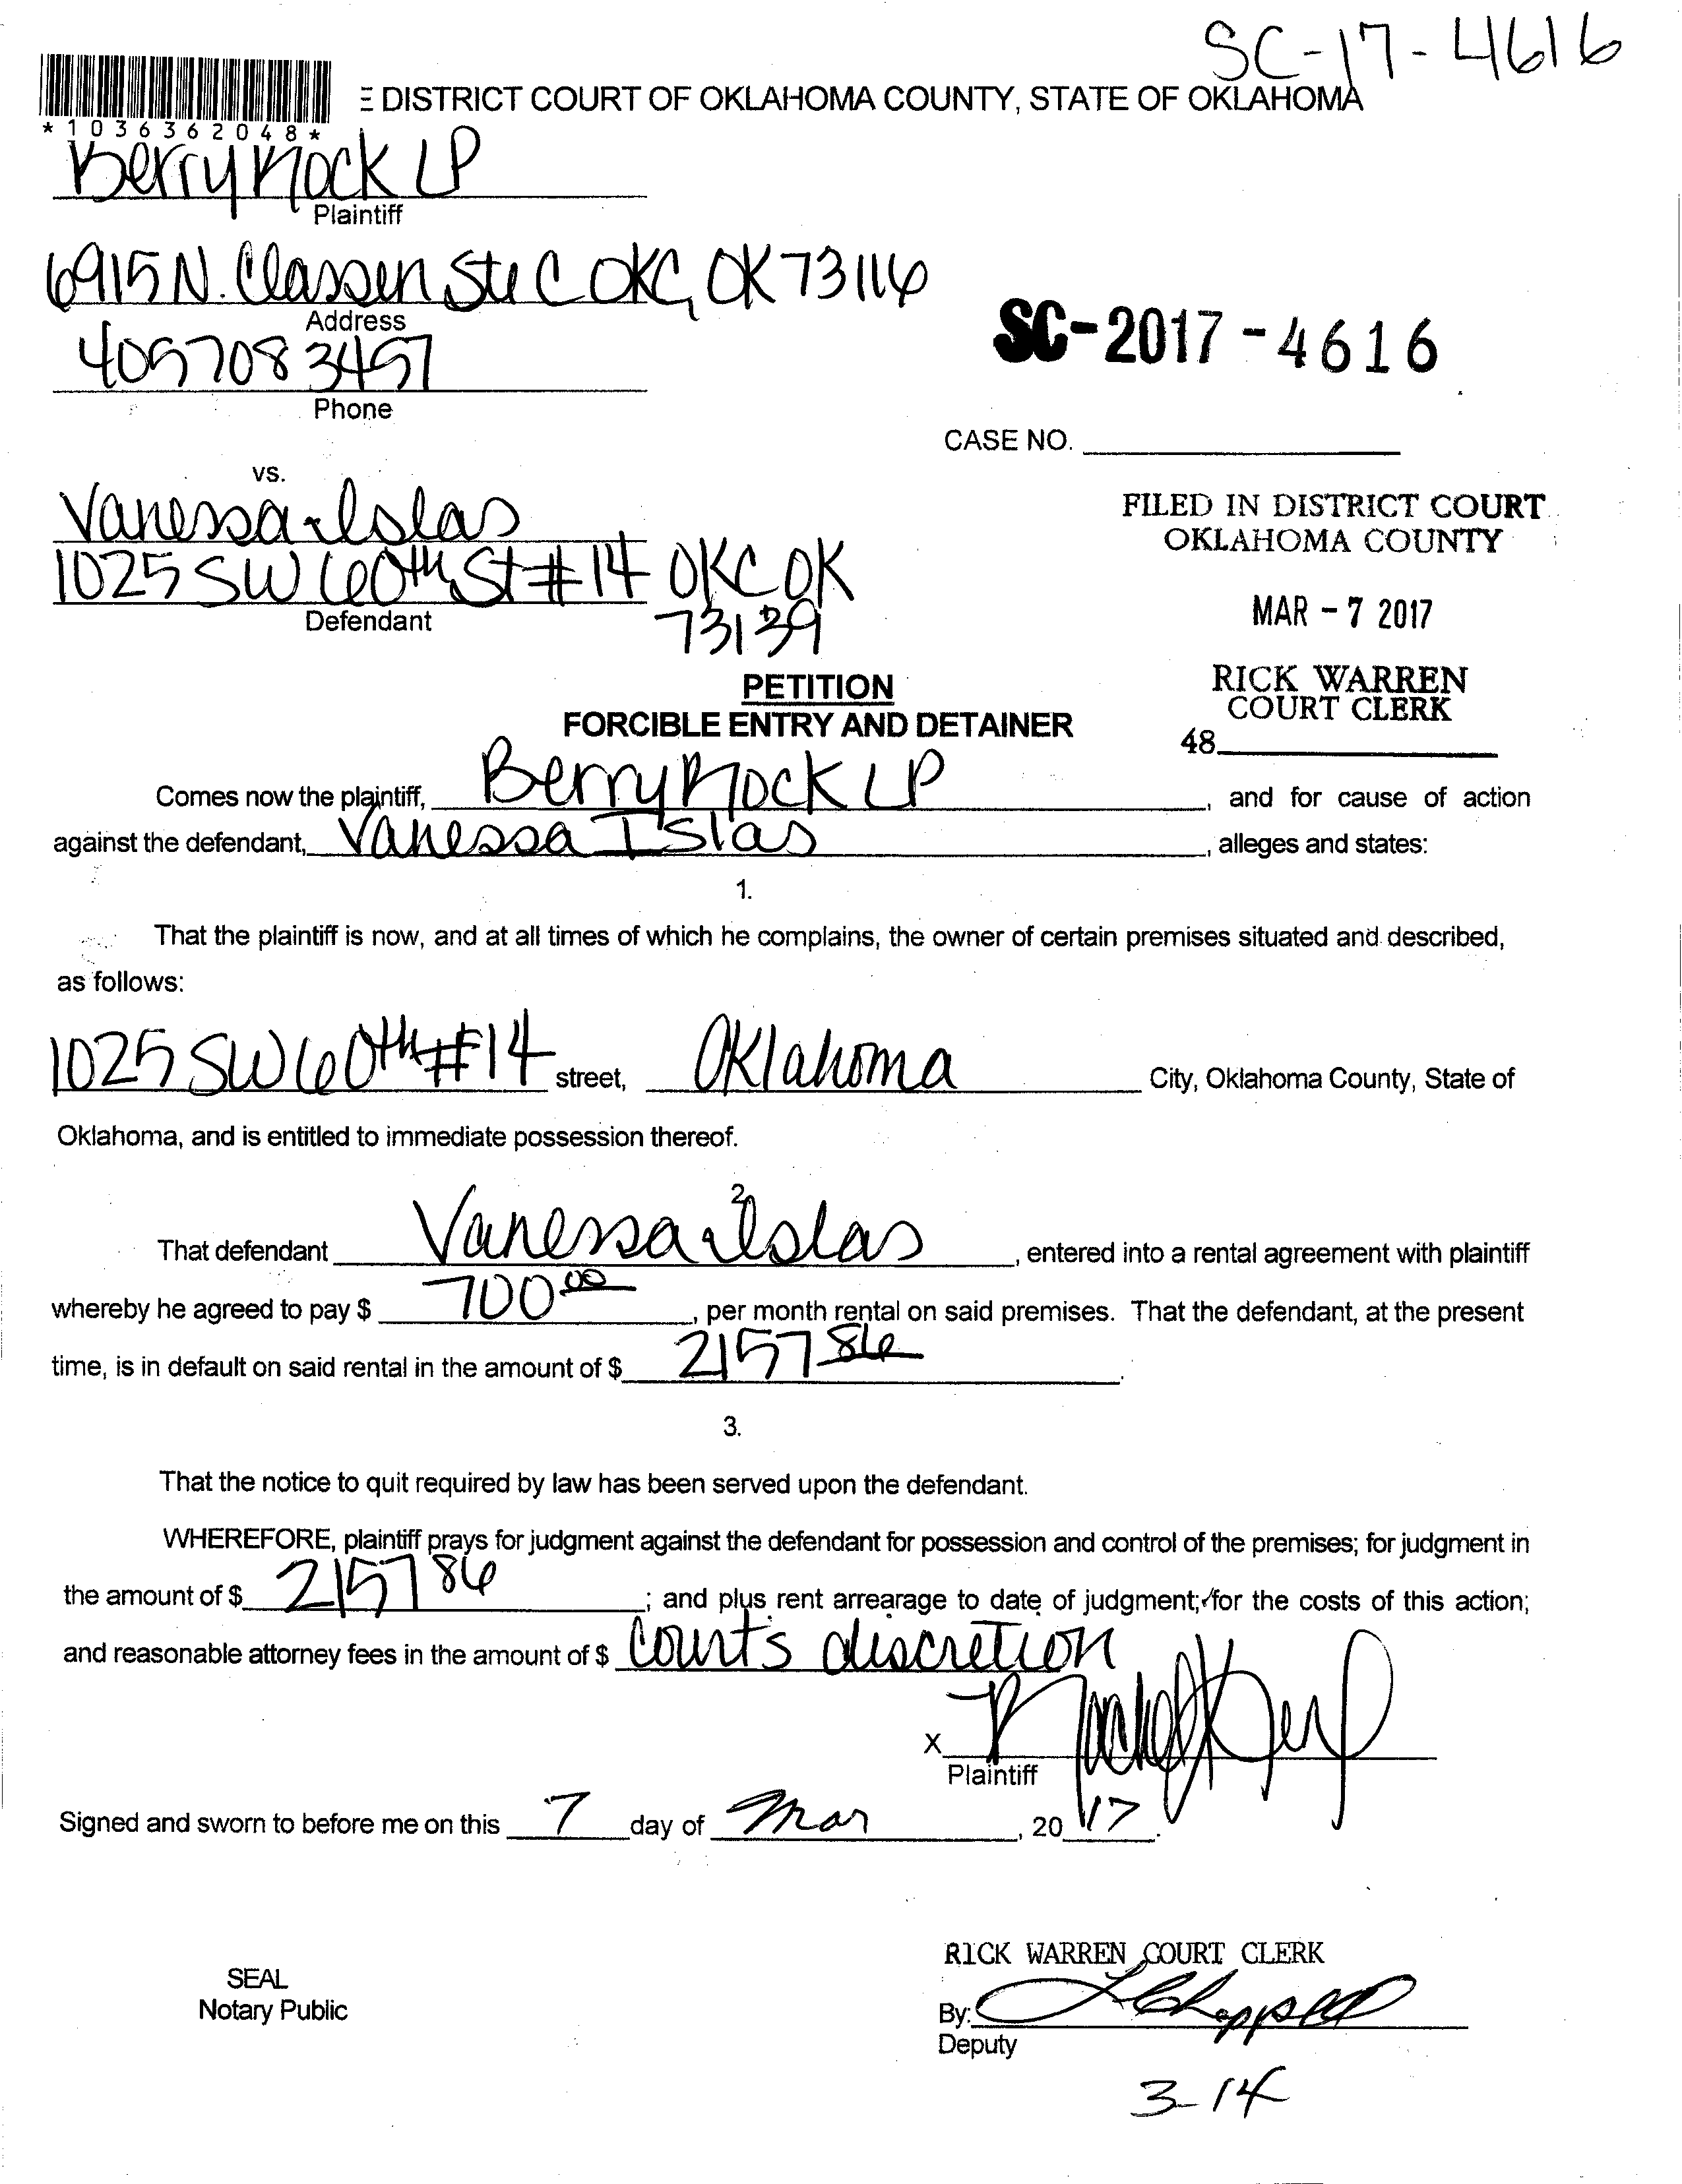 SC-17-4616
E DISTRICT COURT OF OKLAHOMA COUNTY, STATE OF OKLAHOMA
*1036362048*
Berry Rock LP
Plaintiff
6915 N. Classen Ste C OKC, OK 73116
Address
4057083457
Phone
SC-2017-4616
CASE NO.
vs.
Vanessa Islas
1025 SW 60th St #14 OKC OK
73139
Defendant
FILED IN DISTRICT COURT
OKLAHOMA COUNTY
MAR - 7 2017
RICK WARREN
COURT CLERK
48
PETITION
FORCIBLE ENTRY AND DETAINER
Comes now the plaintiff, Berry Rock LP, and for cause of action
against the defendant, Vanessa Islas, alleges and states:
1.
That the plaintiff is now, and at all times of which he complains, the owner of certain premises situated and described,
as follows:
1025 SW 60th #14 street, Oklahoma City, Oklahoma County, State of
Oklahoma, and is entitled to immediate possession thereof.
2.
That defendant Vanessa Islas, entered into a rental agreement with plaintiff
whereby he agreed to pay $ 700 00, per month rental on said premises. That the defendant, at the present
time, is in default on said rental in the amount of $ 2157 86.
3.
That the notice to quit required by law has been served upon the defendant.
WHEREFORE, plaintiff prays for judgment against the defendant for possession and control of the premises; for judgment in
the amount of $ 2157 86; and plus rent arrearage to date of judgment; for the costs of this action;
and reasonable attorney fees in the amount of $ Court's discretion
X
Plaintiff
Signed and sworn to before me on this 7 day of Mar, 20 17.
RICK WARREN COURT CLERK
SEAL
Notary Public
By:
Deputy
3-14